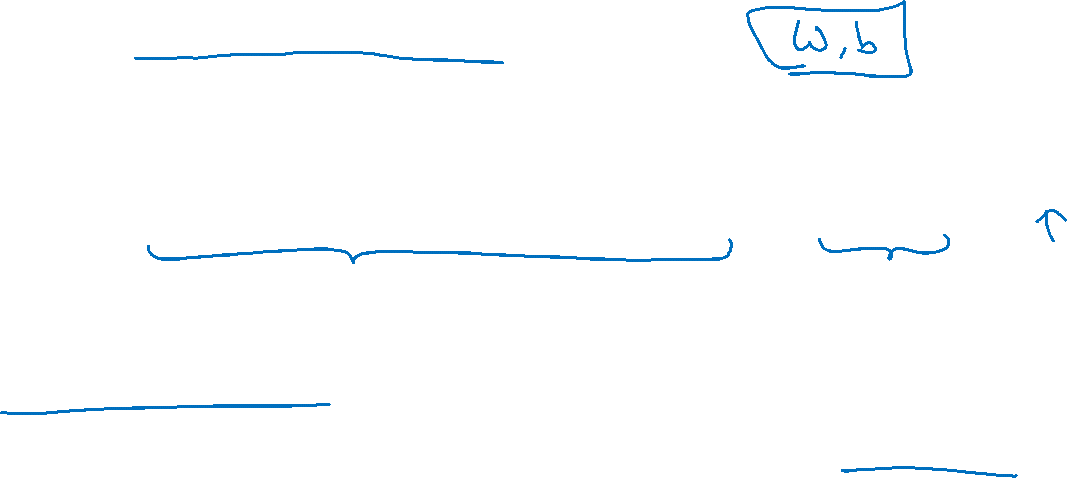 w, b